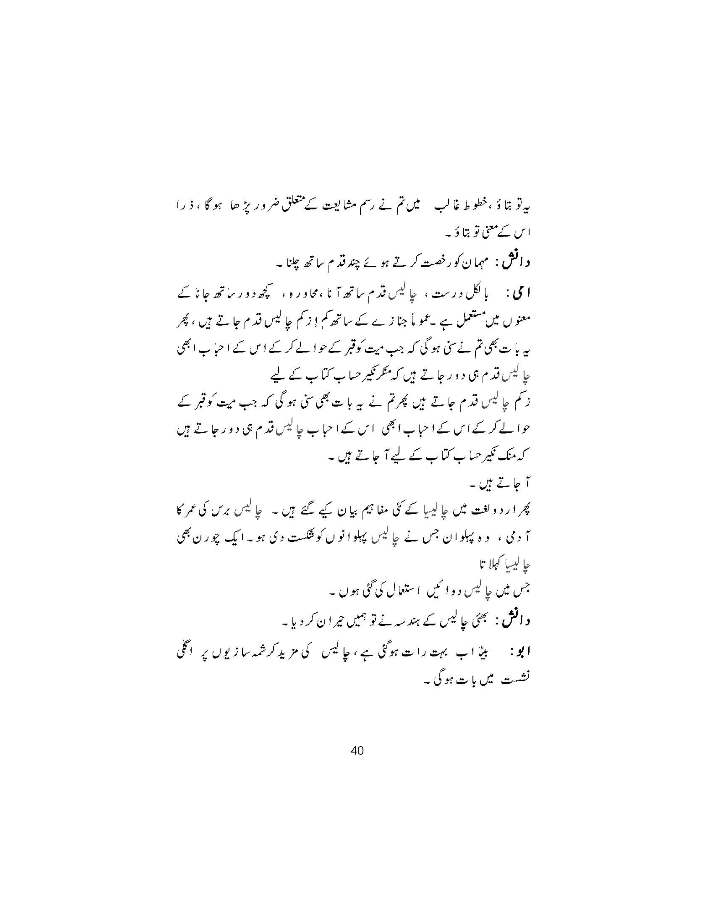 یہ تو بتاؤ ،خطوط غالب میں تم نے رسم مشایعت کے متعلق ضرور پڑھا ہوگا ، ذرا
اس کے معنی تو بتاؤ ۔
دانش : مہمان کو رخصت کرتے ہوئے چند قدم ساتھ چلنا ۔
امی : بالکل درست ، چالیس قدم ساتھ آنا ،محاورہ ، کچھ دور ساتھ جانا کے
معنوں میں مستعمل ہے ۔عموماً جنازے کے ساتھ کم ازکم چالیس قدم جاتے ہیں ، پھر
یہ بات بھی تم نے سنی ہوگی کہ جب میت کو قبر کے حوالے کرکے اس کے احباب ابھی
چالیس قدم ہی دور جاتے ہیں کہ منکر نکیر حساب کتاب کے لیے
زکم چالیس قدم جاتے ہیں پھر تم نے یہ بات بھی سنی ہوگی کہ جب میت کو قبر کے
حوالے کرکے اس کے احباب ابھی اس کے احباب چالیس قدم ہی دور جاتے ہیں
کہ منک نکیر حساب کتاب کے لیے آجاتے ہیں ۔
آجاتے ہیں ۔
پھر اردو لغت میں چالیسا کے کئی مفاہیم بیان کیے گئے ہیں ۔ چالیس برس کی عمر کا
آدمی ، وہ پہلوان جس نے چالیس پہلوانوں کو شکست دی ہو ۔ایک چورن بھی
چالیسا کہلاتا
جس میں چالیس دوائیں استعمال کی گئی ہوں ۔
دانش : بھئی چالیس کے ہندسہ نے تو ہمیں حیران کردیا ۔
ابو : بیٹا اب بہت رات ہوگئی ہے ، چالیس کی مزید کرشمہ سازیوں پر اگلی
نشست میں بات ہوگی ۔
40